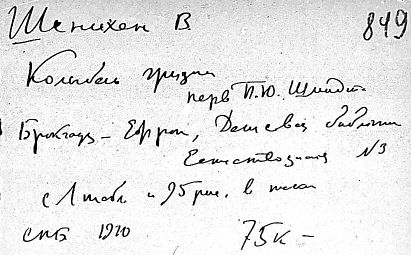 Шенихен В. 849
Колыбель
перев П.Ю. Шмидт
Брокгауз – Ефрон, Дешевая библиотека
Естествознания №3
с 1 табл и 95 рис. в тексте
СПБ 1910 75к –